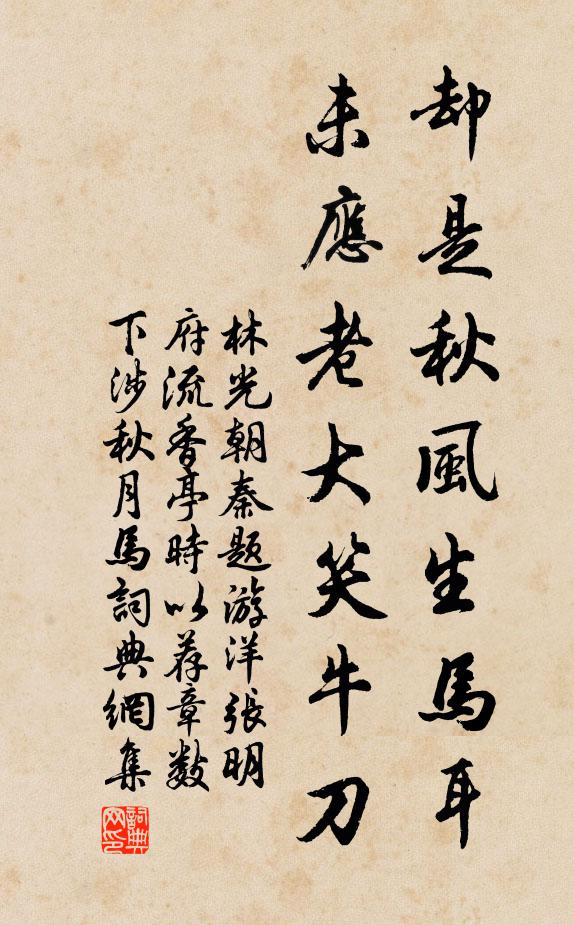 却是秋風生馬耳
未應老大笑牛刀
林光朝奉題游洋張明
府流香亭時以荐章數
下涉秋月馬詞典網集
詞典網印